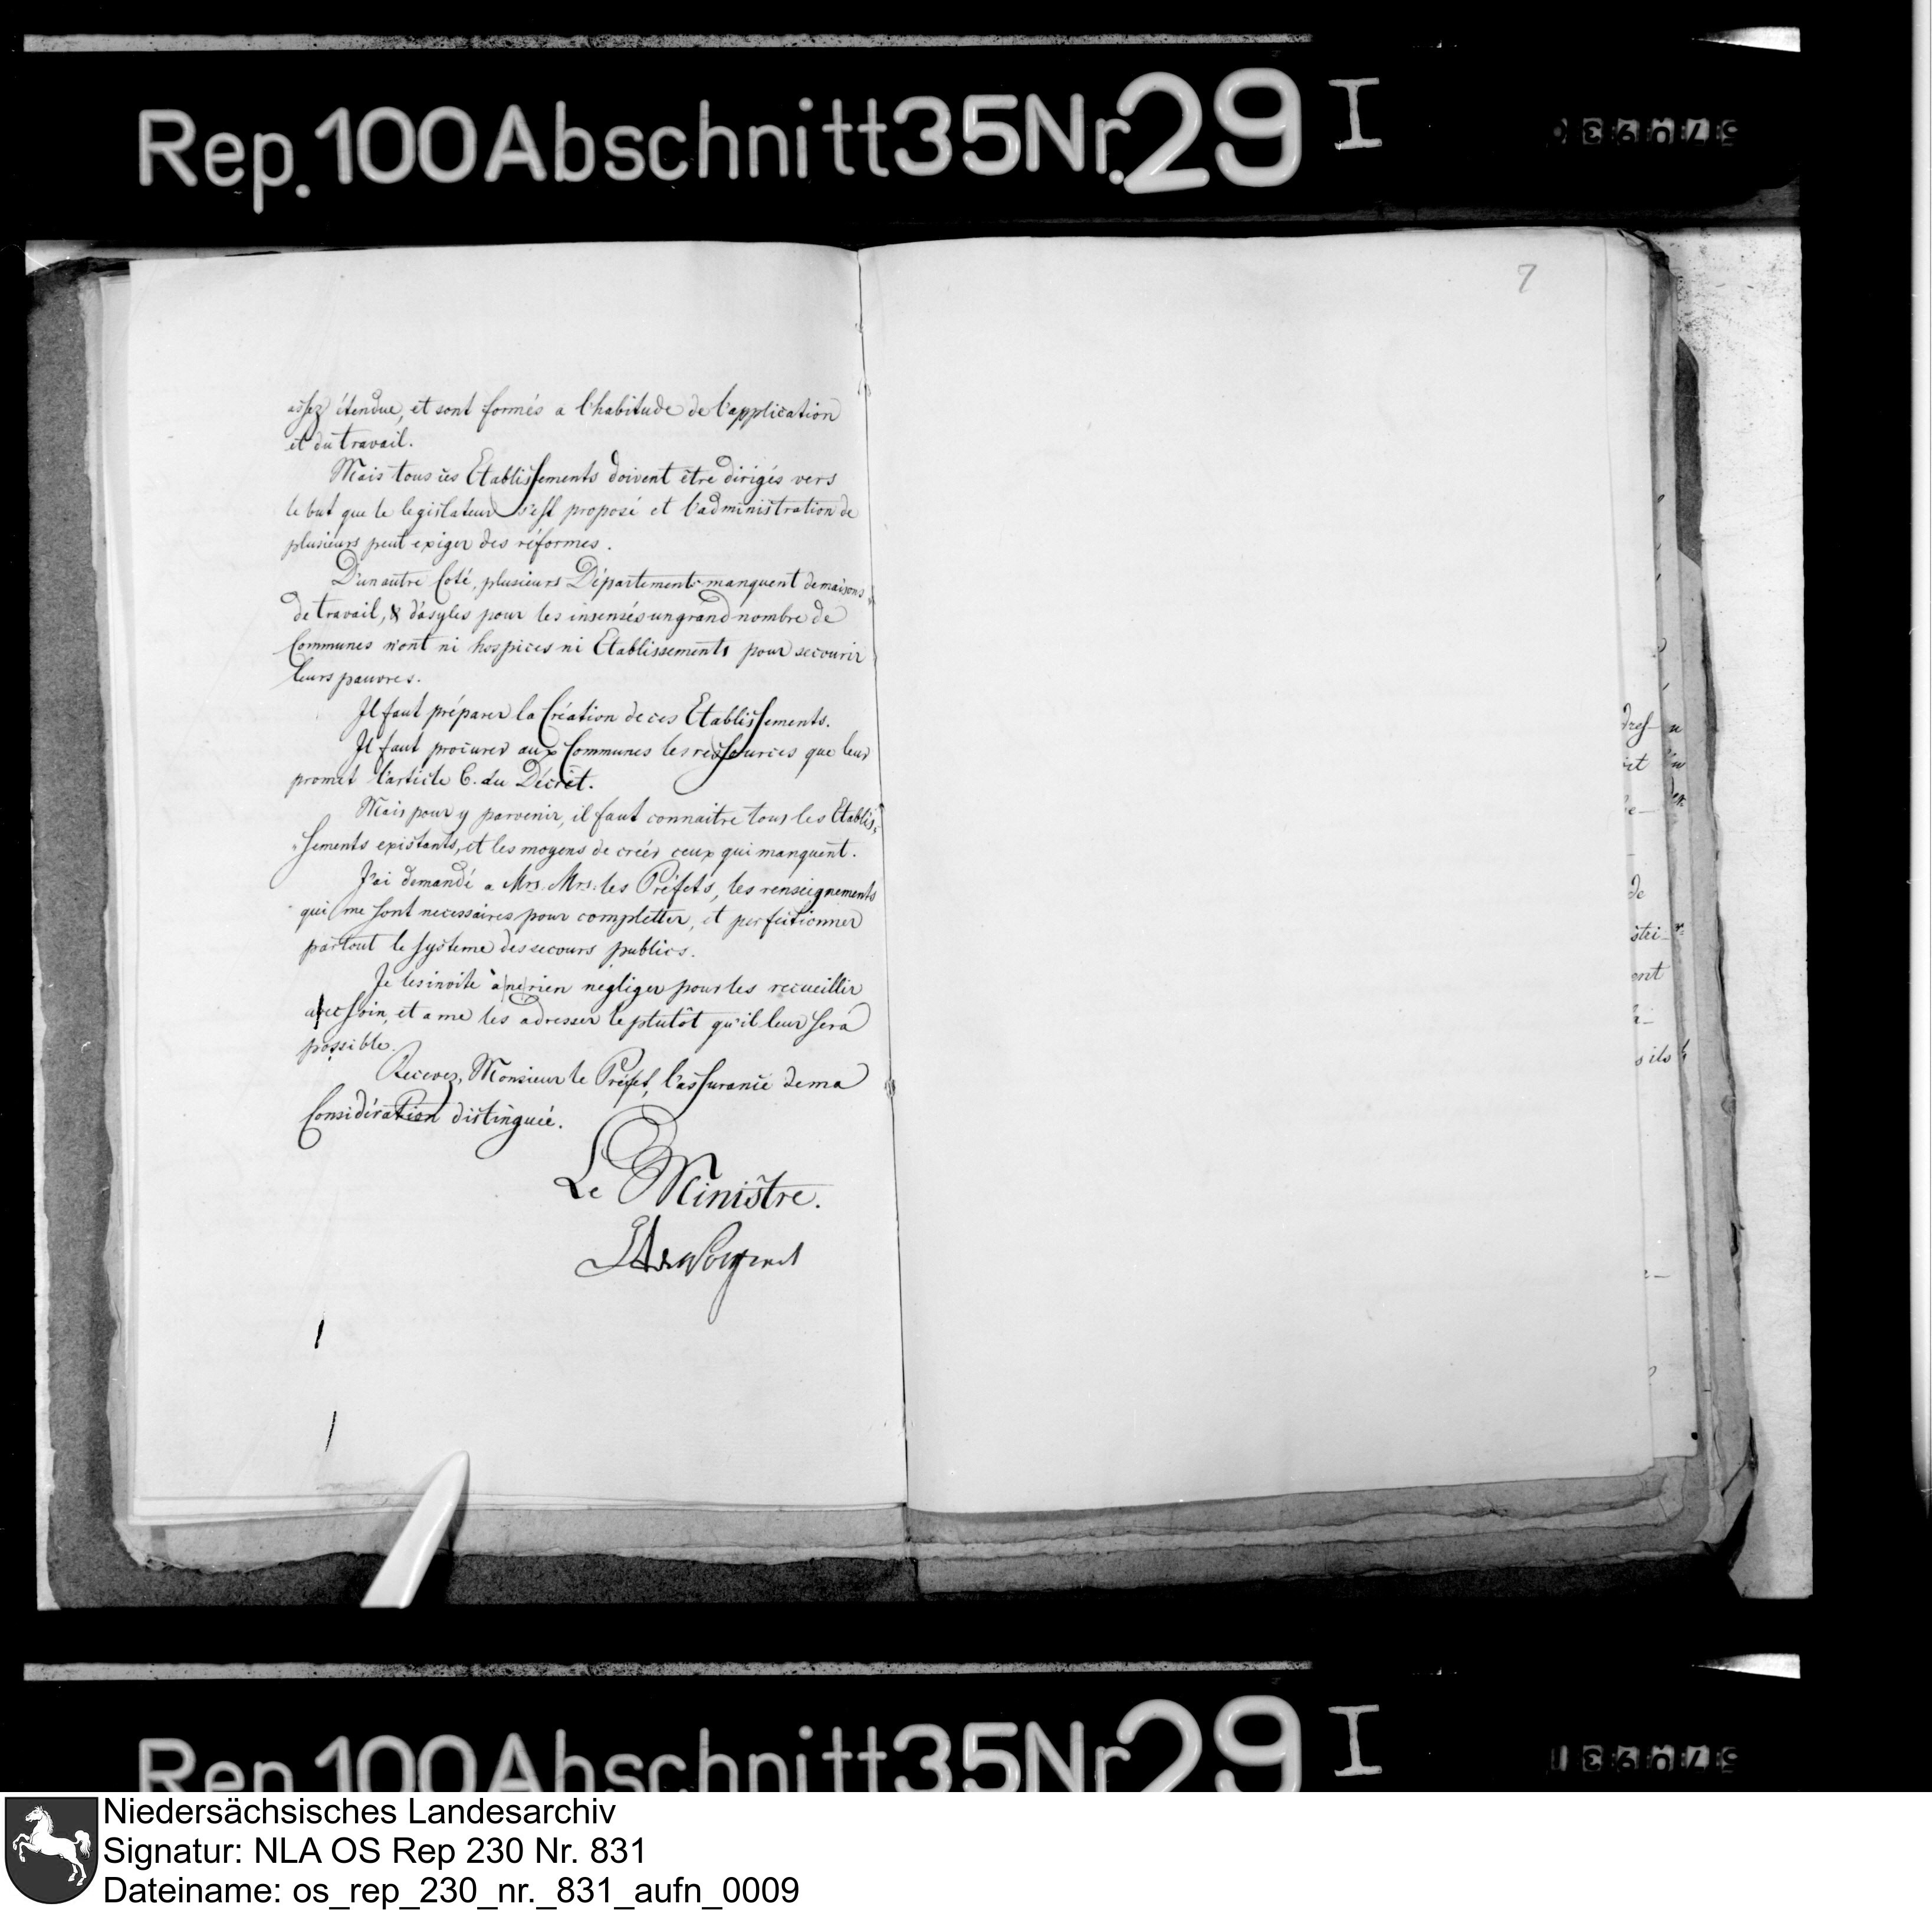 Rep. 100 Abschnitt 35 Nr. 29 I
7
assez étendue, et sont formés a l'habitude de l'application
et du travail.
Mais tous ces Etablissements doivent être dirigés vers
le but que le legislateur s'est proposé et l'administration de
plusieurs peut exiger des réformes.
D'un autre Coté, plusieurs Départements manquent de maisons
de travail, & d'asyles pour les insensés un grand nombre de
Communes n'ont ni hospices ni Etablissements pour secourir
leurs pauvres.
Il faut préparer la Création de ces Etablissements.
Il faut procurer aux Communes les ressources que leur
promet l'article 6. du Décret.
Mais pour y parvenir, il faut connaitre tous les Etablis-
"sements existants, et les moyens de créer ceux qui manquent.
J'ai demandé a Mrs. Mrs. les Préfets, les renseignements
qui me sont necessaires pour completter, et perfectionner
partout le systeme des secours publics.
Je les invite à ne rien negliger pour les recueillir
avec soin, et a me les adresser le plutôt qu'il leur sera
possible.
Recevez, Monsieur le Préfet, l'assurance de ma
Considération distinguée.
Le Ministre.
Rep. 100 Abschnitt 35 Nr. 29 I
Niedersächsisches Landesarchiv
Signatur: NLA OS Rep 230 Nr. 831
Dateiname: os_rep_230_nr._831_aufn_0009